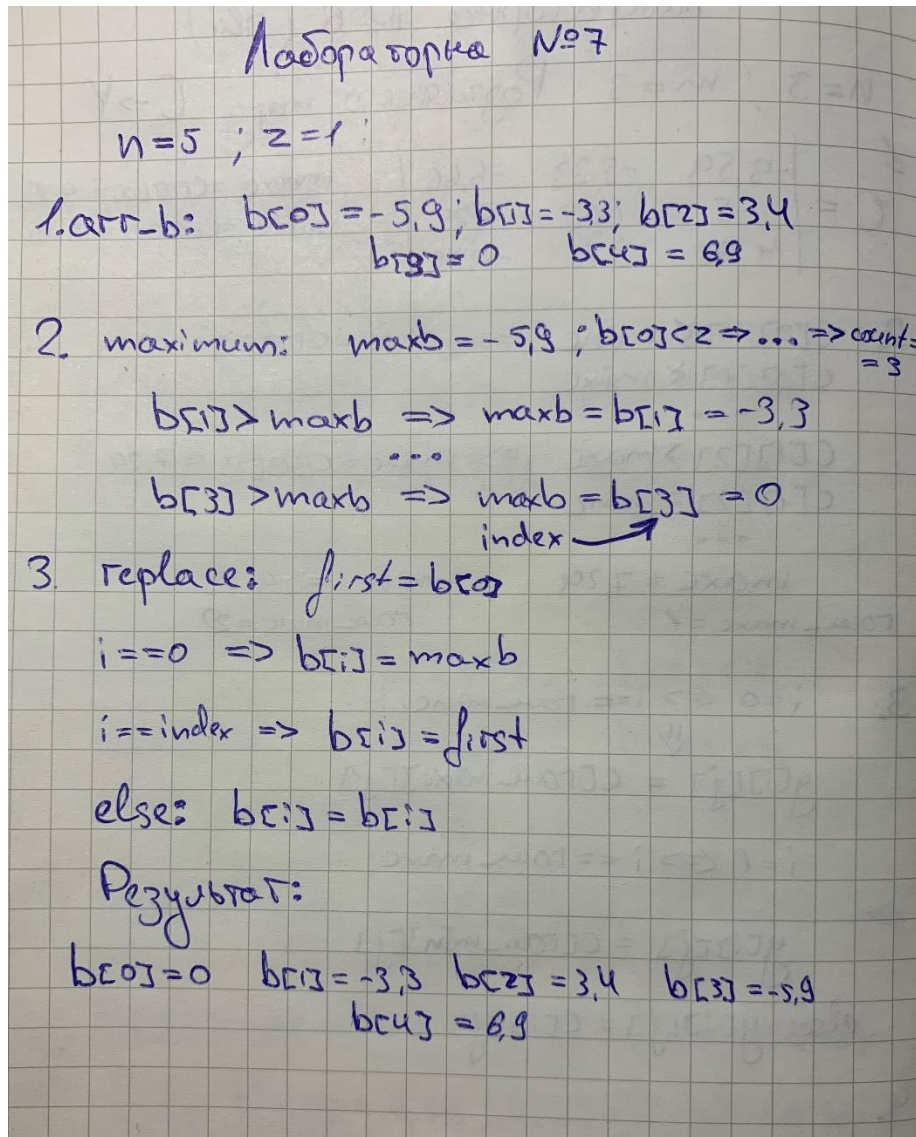 Лабораторна №7
n=5 ; z=1 :
1.arr_b: b[0] = -5,9; b[1] = -33; b[2] = 3,4
b[3] = 0 b[4] = 6,9
2. maximum: maxb = -5,9 ; b[0]<z => ... => count=
= 3
b[1] > maxb => maxb = b[1] = -3,3
...
b[3] > maxb => maxb = b[3] = 0
index
3. replace: first = b[0]
i==0 => b[i] = maxb
i==index => b[i] = first
else: b[i] = b[i]
Результат:
b[0] = 0 b[1] = -3,3 b[2] = 3,4 b[3] = -5,9
b[4] = 6,9